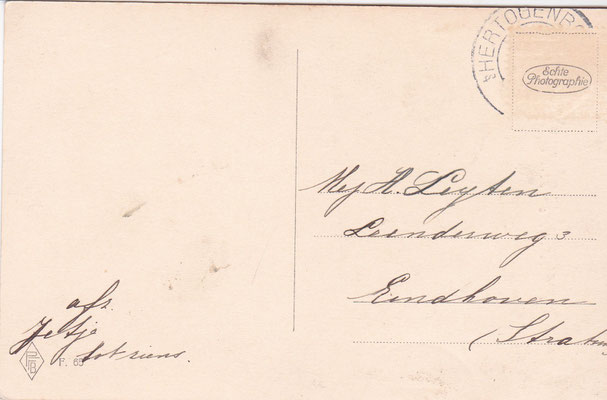 'sHERTOGENB
Echte
Photographie
Mej H. Leyten
Leenderweg 3
Eindhoven
(Strat
afz.
Jetje
tot ziens.
F. 65